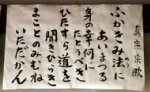 ふかきみ法に
あいまつる
身の幸何に
たとうべき
ひたすら道を
聞きひらき
まことのみむね
いただかん